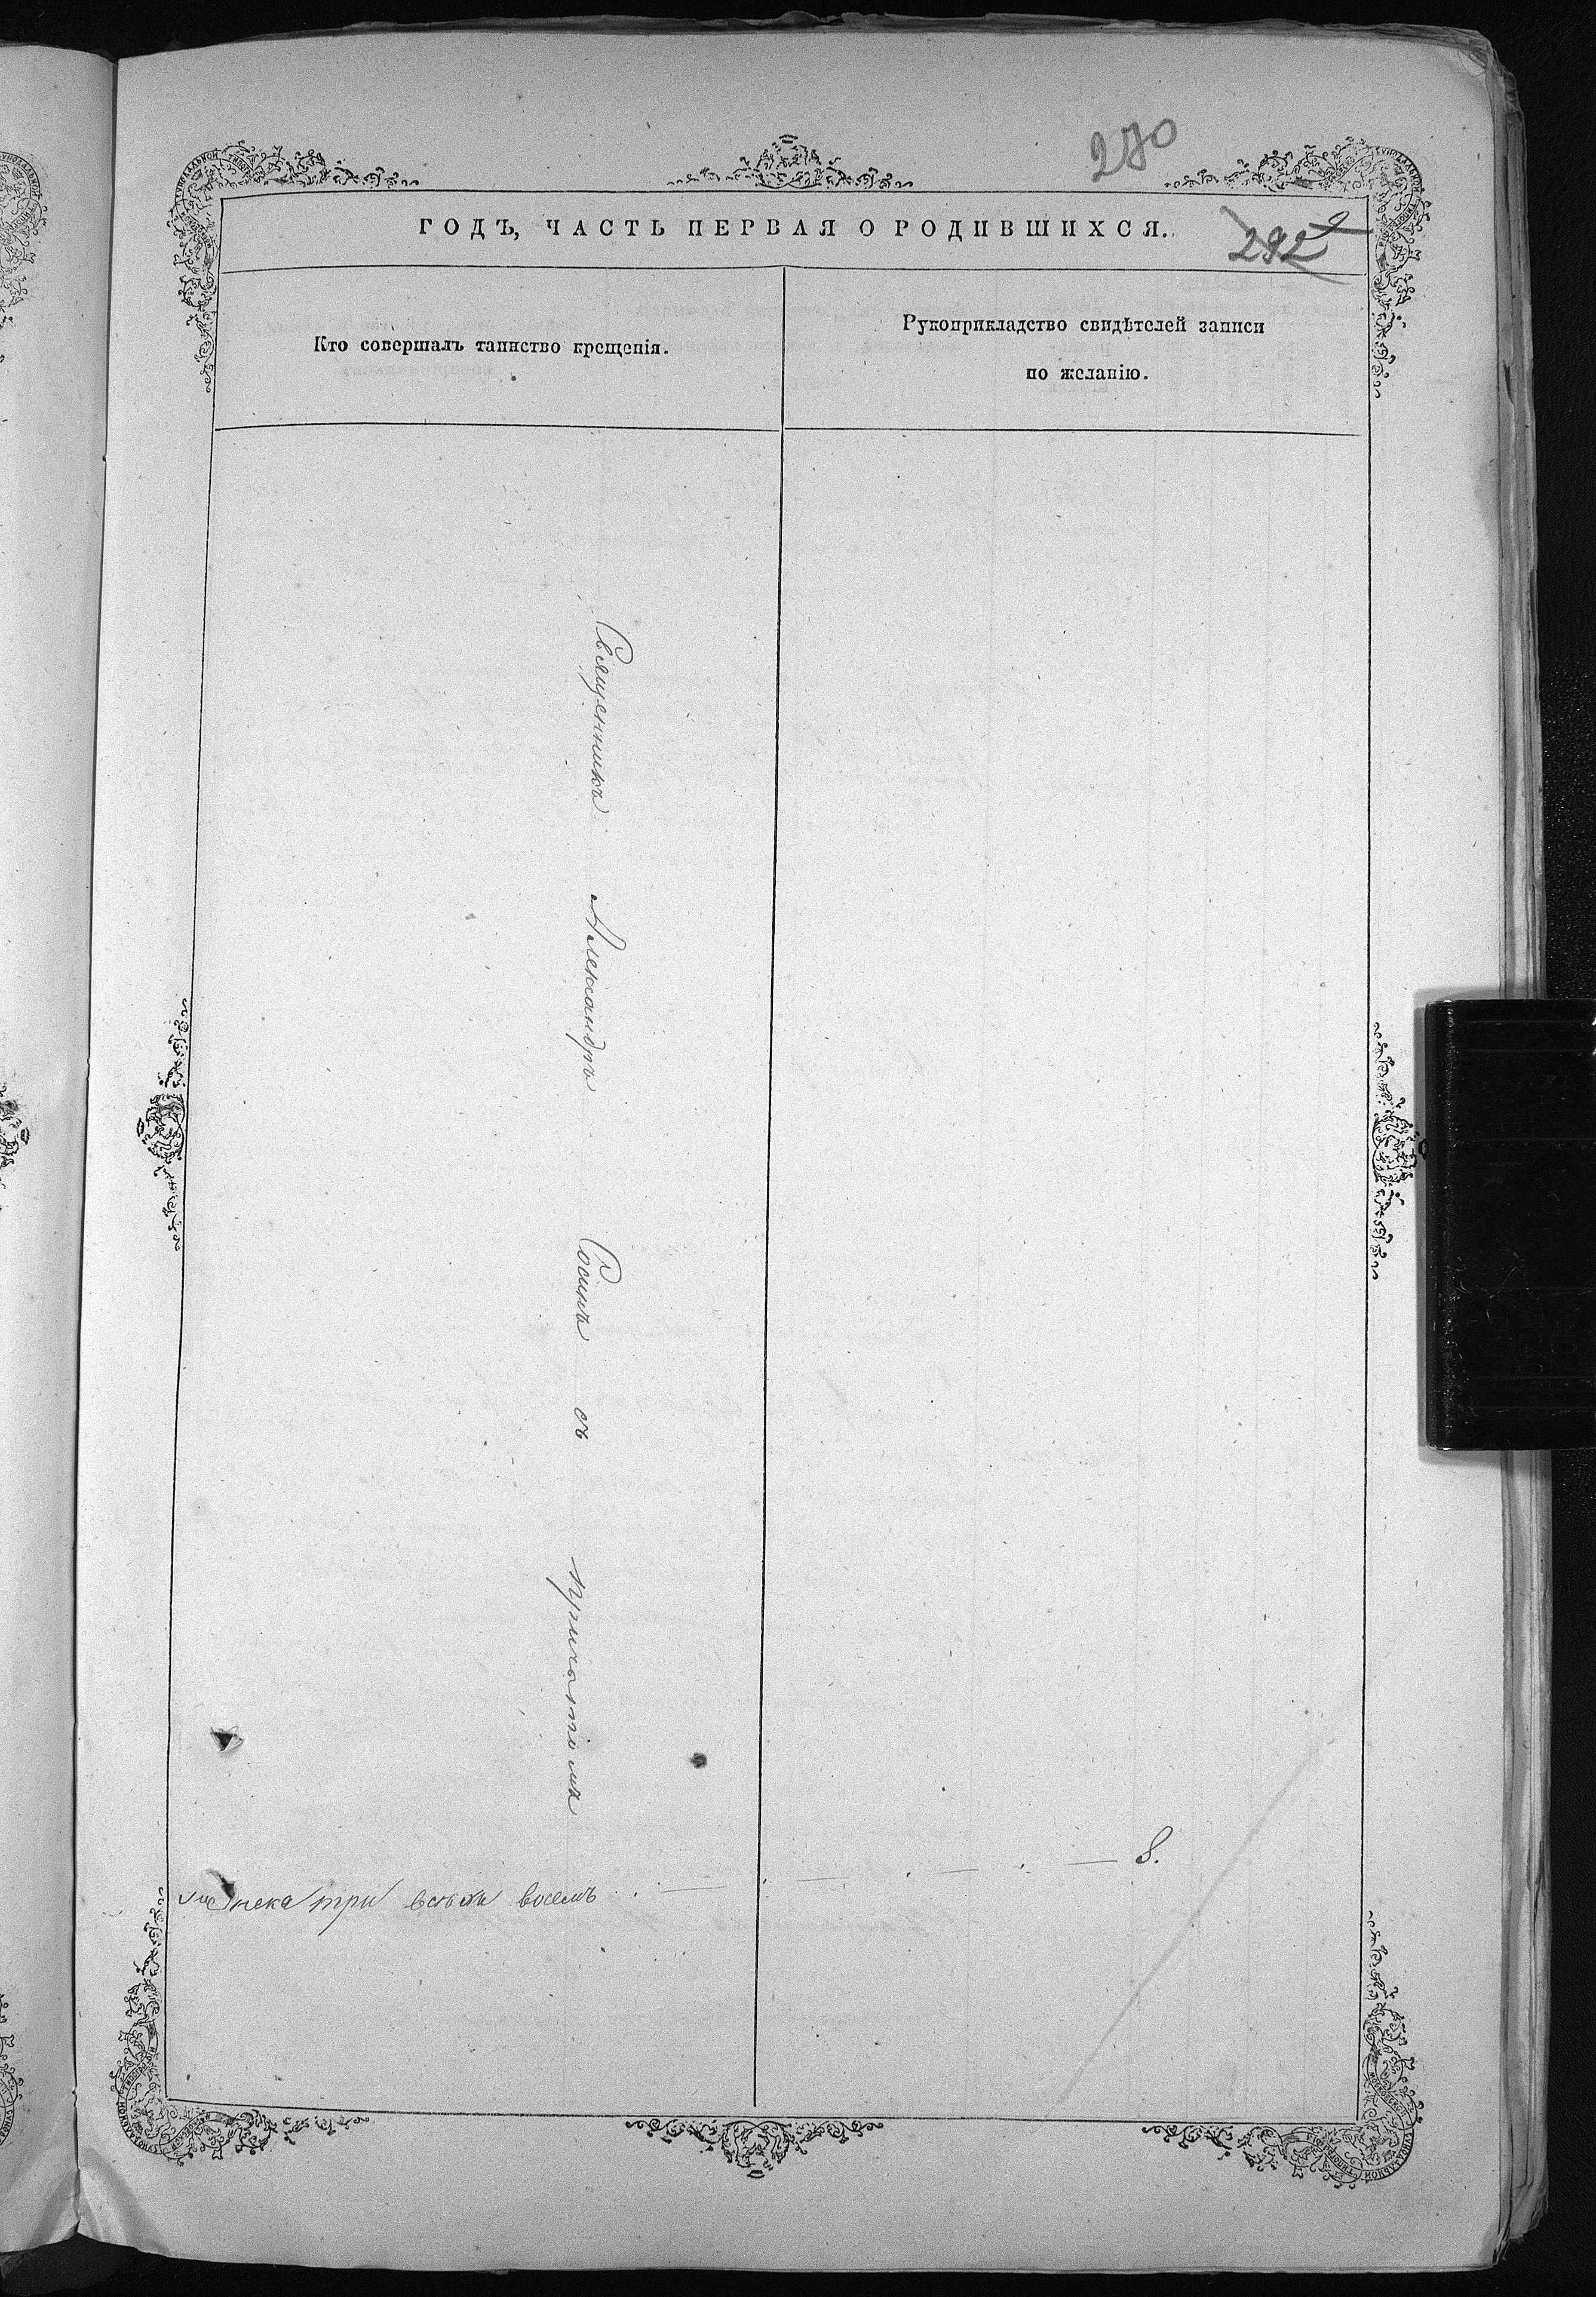 270
ГОДЪ, ЧАСТЬ ПЕРВАЯ О РОДИВШИХСЯ.
292
Кто совершалъ таинство крещенія.
Рукоприкладство свидѣтелей записи
по желанію.
Священникъ Александръ Сосинъ съ причтомъ
три всѣхъ восемь 8.